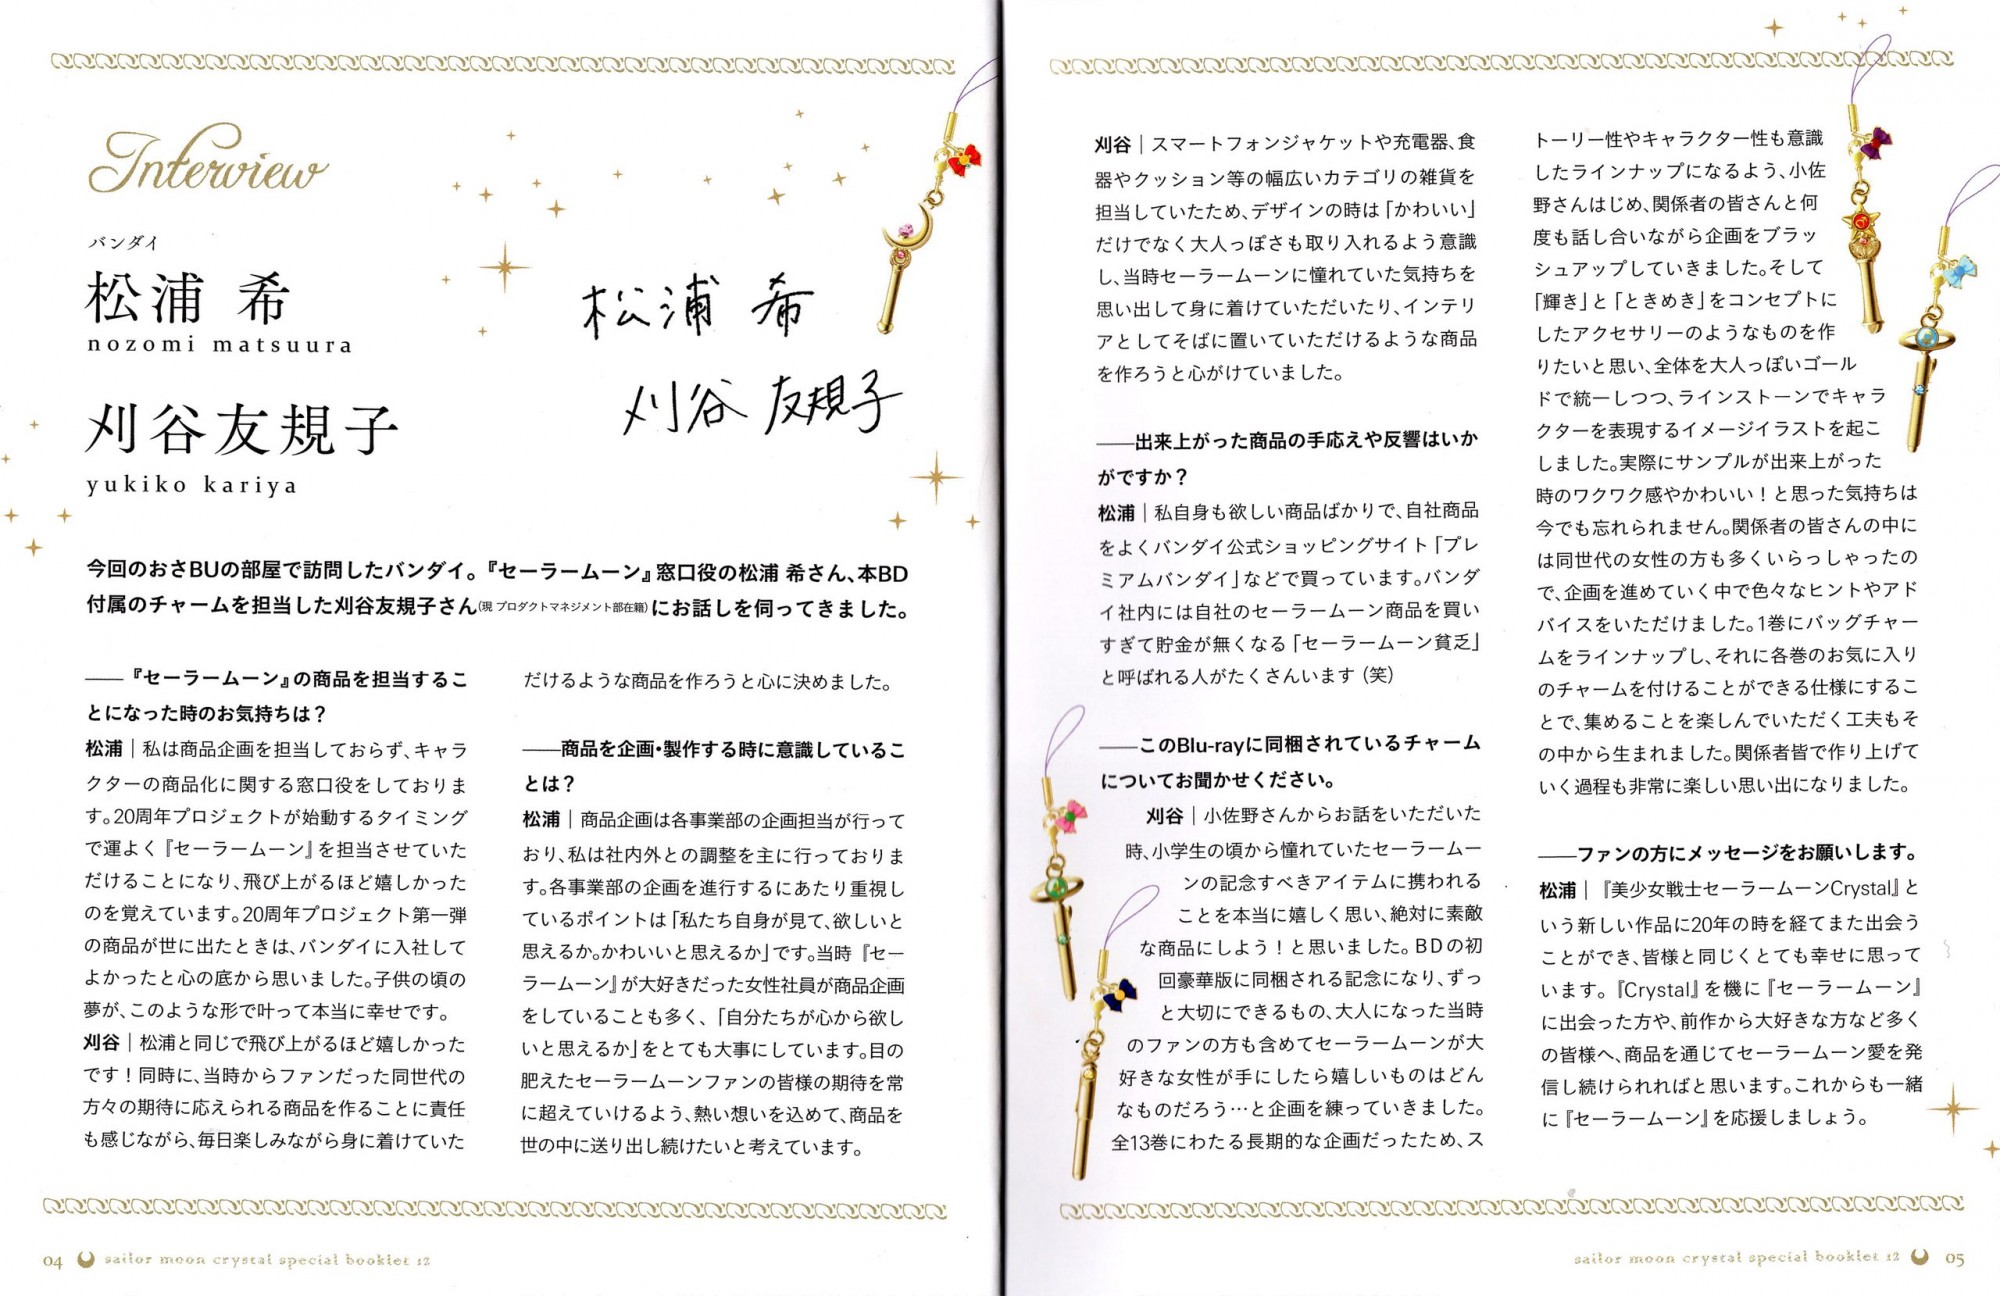 Interview
バンダイ
松浦 希
nozomi matsuura
刈谷友規子
yukiko kariya
松浦 希
刈谷 友規子
今回のおさBUの部屋で訪問したバンダイ。『セーラームーン』窓口役の松浦 希さん、本BD
付属のチャームを担当した刈谷友規子さん(現 プロダクトマネジメント部在籍)にお話しを伺ってきました。
――『セーラームーン』の商品を担当するこ
とになった時のお気持ちは？
松浦｜私は商品企画を担当しておらず、キャラ
クターの商品化に関する窓口役をしておりま
す。20周年プロジェクトが始動するタイミング
で運よく『セーラームーン』を担当させていた
だけることになり、飛び上がるほど嬉しかった
のを覚えています。20周年プロジェクト第一弾
の商品が世に出たときは、バンダイに入社して
よかったと心の底から思いました。子供の頃の
夢が、このような形で叶って本当に幸せです。
刈谷｜松浦と同じで飛び上がるほど嬉しかった
です！同時に、当時からファンだった同世代の
方々の期待に応えられる商品を作ることに責任
も感じながら、毎日楽しみながら身に着けていた
だけるような商品を作ろうと心に決めました。
――商品を企画・製作する時に意識しているこ
とは？
松浦｜商品企画は各事業部の企画担当が行って
おり、私は社内外との調整を主に行っておりま
す。各事業部の企画を進行するにあたり重視し
ているポイントは「私たち自身が見て、欲しいと
思えるか。かわいいと思えるか」です。当時『セー
ラームーン』が大好きだった女性社員が商品企画
をしていることも多く、「自分たちが心から欲し
いと思えるか」をとても大事にしています。目の
肥えたセーラームーンファンの皆様の期待を常
に超えていけるよう、熱い想いを込めて、商品を
世の中に送り出し続けたいと考えています。
04 sailor moon crystal special booklet 12
刈谷｜スマートフォンジャケットや充電器、食
器やクッション等の幅広いカテゴリの雑貨を
担当していたため、デザインの時は「かわいい」
だけでなく大人っぽさも取り入れるよう意識
し、当時セーラームーンに憧れていた気持ちを
思い出して身に着けていただいたり、インテリ
アとしてそばに置いていただけるような商品
を作ろうと心がけていました。
――出来上がった商品の手応えや反響はいか
がですか？
松浦｜私自身も欲しい商品ばかりで、自社商品
をよくバンダイ公式ショッピングサイト「プレ
ミアムバンダイ」などで買っています。バンダ
イ社内には自社のセーラームーン商品を買い
すぎて貯金が無くなる「セーラームーン貧乏」
と呼ばれる人がたくさんいます（笑）
――このBlu-rayに同梱されているチャーム
についてお聞かせください。
刈谷｜小佐野さんからお話をいただいた
時、小学生の頃から憧れていたセーラームー
ンの記念すべきアイテムに携われる
ことを本当に嬉しく思い、絶対に素敵
な商品にしよう！と思いました。BDの初
回豪華版に同梱される記念になり、ずっ
と大切にできるもの、大人になった当時
のファンの方も含めてセーラームーンが大
好きな女性が手にしたら嬉しいものはどん
なものだろう…と企画を練っていきました。
全13巻にわたる長期的な企画だったため、ス
トーリー性やキャラクター性も意識
したラインナップになるよう、小佐
野さんはじめ、関係者の皆さんと何
度も話し合いながら企画をブラッ
シュアップしていきました。そして
「輝き」と「ときめき」をコンセプトに
したアクセサリーのようなものを作
りたいと思い、全体を大人っぽいゴール
ドで統一しつつ、ラインストーンでキャラ
クターを表現するイメージイラストを起こ
しました。実際にサンプルが出来上がった
時のワクワク感やかわいい！と思った気持ちは
今でも忘れられません。関係者の皆さんの中に
は同世代の女性の方も多くいらっしゃったの
で、企画を進めていく中で色々なヒントやアド
バイスをいただけました。1巻にバッグチャー
ムをラインナップし、それに各巻のお気に入り
のチャームを付けることができる仕様にするこ
とで、集めることを楽しんでいただく工夫もそ
の中から生まれました。関係者皆で作り上げて
いく過程も非常に楽しい思い出になりました。
――ファンの方にメッセージをお願いします。
松浦｜『美少女戦士セーラームーンCrystal』と
いう新しい作品に20年の時を経てまた出会う
ことができ、皆様と同じくとても幸せに思って
います。『Crystal』を機に『セーラームーン』
に出会った方や、前作から大好きな方など多く
の皆様へ、商品を通じてセーラームーン愛を発
信し続けられればと思います。これからも一緒
に『セーラームーン』を応援しましょう。
sailor moon crystal special booklet 12 05